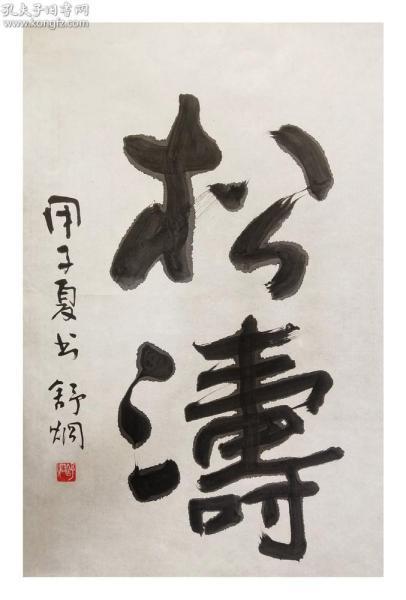 孔夫子旧书网
www.kongfz.com
松濤
甲子夏书 舒炯